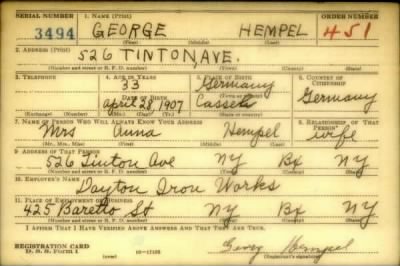 SERIAL NUMBER 1. NAME (Print) ORDER NUMBER
3494 GEORGE HEMPEL 451
(First) (Middle) (Last)
2. ADDRESS (Print)
526 TINTON AVE.
(Number and street or R. F. D. number) (Town) (County) (State)
3. TELEPHONE 4. AGE IN YEARS 5. PLACE OF BIRTH 6. COUNTRY OF CITIZENSHIP
33 Germany
DATE OF BIRTH Cassel Germany
April 28, 1907
(Exchange) (Number) (Mo.) (Day) (Yr.) (State or country)
7. NAME OF PERSON WHO WILL ALWAYS KNOW YOUR ADDRESS 8. RELATIONSHIP OF THAT PERSON
Mrs Anna Hempel wife
(Mr., Mrs., Miss) (First) (Middle) (Last)
9. ADDRESS OF THAT PERSON
526 Tinton Ave NY Bx NY
(Number and street or R. F. D. number) (Town) (County) (State)
10. EMPLOYER'S NAME
Dayton Iron Works
11. PLACE OF EMPLOYMENT OR BUSINESS
425 Baretto St NY Bx NY
(Number and street or R. F. D. number) (Town) (County) (State)
I AFFIRM THAT I HAVE VERIFIED ABOVE ANSWERS AND THAT THEY ARE TRUE.
REGISTRATION CARD
D. S. S. Form 1 (over) Georg Hempel
(Registrant's signature)